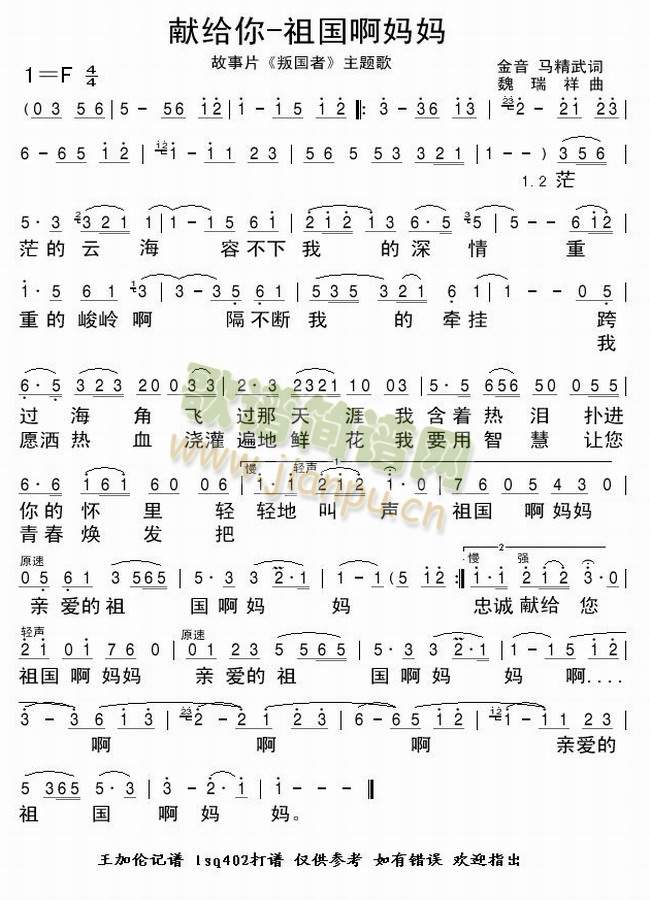 献给你-祖国啊妈妈
故事片《叛国者》主题歌
1=F 4/4
金音 马精武词
魏 瑞 祥 曲
(0 3 5 6 | 5 - 5 6 1 2 | 2 - 6 6 1 2 ‖: 3 - 3 6 1 3 | 2 - 2 1 2 3 |
6 - 6 5 1 2 | 1 - 1 1 2 3 | 5 5 3 5 5 3 3 2 1 | 1 - - ) 3 5 6 |
1.2 茫
5· 3 3 2 1 3 | 1 - 1 5 6 1 | 1 2 1 2 3 6· 5 3 | 5 - - 6 1 2 |
茫 的 云 海 容 不 下 我 的 深 情 重
1· 5 6 1 3 | 3 - 3 5 6 1 | 5 3 5 3 2 1 6 1 | 1 - - 0 5 |
重 的 峻 岭 啊 隔 不 断 我 的 牵 挂 跨
我
6· 5 3 2 1 2 3 | 2 0 0 0 3 3 | 2· 3 2 3 2 1 | 1 0 0 3 | 5· 5 6 5 6 5 0 0 5 5 |
过 海 角 飞 过 那 天 涯 我 含 着 热 泪 扑 进
愿 洒 热 血 浇 灌 遍 地 鲜 花 我 要 用 智 慧 让 您
1.
慢 轻声
6· 6 1 6 1 6 0 0 6 | 1· 1 2 1 2 1· 0 | 7 6 0 5 4 3 0 |
你 的 怀 里 轻 轻 地 叫 声 祖 国 啊 妈 妈
青 春 焕 发 把
原速
2.
慢 强
0 5 6 1 3 5 6 5 | 5· 3 3 2· 1 | 1 - 1 (5 1 2 :‖ 1· 1 2 1 2 3· 0 |
亲 爱 的 祖 国 啊 妈 妈 忠 诚 献 给 您
轻声 原速
2 1 0 1 7 6 0 | 0 1 2 3 5 6 5 | 5· 3 3 2· 1 | 1 - 1 5 1 2 |
祖 国 啊 妈 妈 亲 爱 的 祖 国 啊 妈 妈 啊....
3 - 3 6 1 3 | 2 - 2 1 2 3 | 6 - 6 5 1 2 | 1 - 1 1 2 3 |
啊 啊 啊 亲 爱 的
5 3 6 5 5· 3 | 3 - 2· 1 | 1 - - - ‖
祖 国 啊 妈 妈。
王加伦记谱 lsq402打谱 仅供参考 如有错误 欢迎指出
歌谱简谱网
www.jianpu.cn